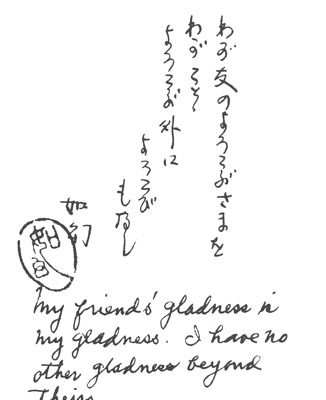 わが友のよろこぶさまを
わが
よろこぶ外に
よろこび
もなし
如幻
My friends' gladness is
my gladness. I have no
other gladness beyond
Theirs